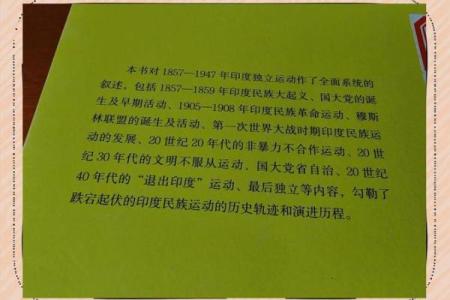 本书对1857—1947年印度独立运动作了全面系统的
叙述。包括1857—1859年印度民族大起义、国大党的诞
生及早期活动、1905—1908年印度民族革命运动、穆斯
林联盟的诞生及活动、第一次世界大战时期印度民族运
动的发展、20世纪20年代的非暴力不合作运动、20世
纪30年代的文明不服从运动、国大党省自治、20世纪
40年代的“退出印度”运动、最后独立等内容，勾勒了
跌宕起伏的印度民族运动的历史轨迹和演进历程。